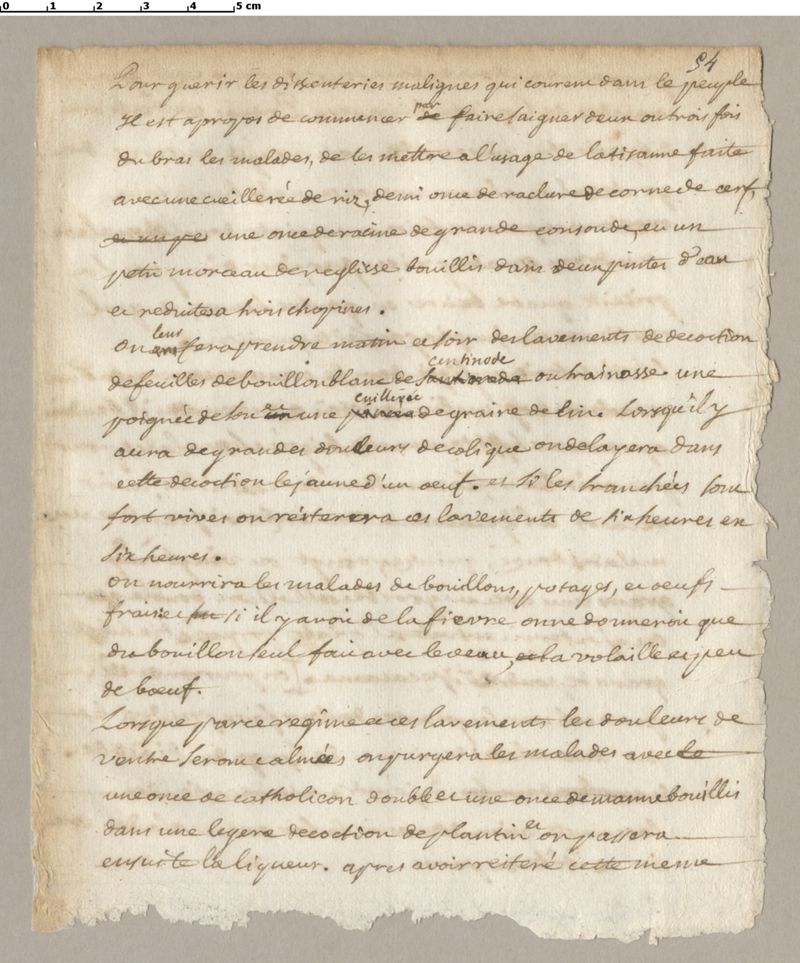 0 1 2 3 4 5 cm
54
Pour guerir les dissenteries malignes qui courent dans le peuple
Il est apropos de commencer par de faire saigner deux ou trois fois
du bras les malades, de les mettre a l'usage de la tisanne faite
avec une cueillerée de riz, demi once de raclure de corne de cerf,
et un pe une once de racine de grande consoude, et un
petit morceau de reglisse bouillis dans deux pintes d'eau
et reduites a trois chopines.
on leur fera prendre matin et soir des lavements de decoction
de feuilles de bouillon blanc de centinode ou trainasse une
poignée de son et une cuillerée de graine de lin. Lorsqu'il y
aura de grandes douleurs de colique on delayera dans
cette decoction le jaune d'un oeuf. et si les tranchées sont
fort vives on réiterera ces lavements de six heures en
six heures.
on nourrira les malades de bouillons, potages, et oeufs
frais et si il y avoit de la fievre on ne donneroit que
du bouillon seul fait avec le veau, et la volaille et peu
de boeuf.
Lorsque par ce regime et ces lavements les douleurs de
ventre seront calmées on purgera les malades avec le
une once de catholicon double et une once de manne bouillis
dans une legere decoction de plantin et on passera
ensuite la liqueur. apres avoir reiteré cette meme